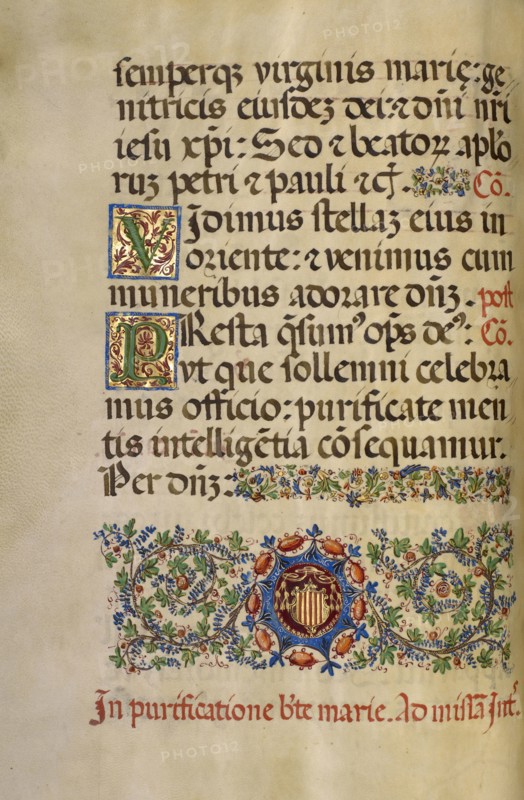 semperqꝫ virginis marię: ge
nitricis eiusdeꝫ dei: ⁊ dñi nr̃i
iesu xp̃i: Sed ⁊ beatoꝝ apl̃o
ruꝫ petri ⁊ pauli ⁊cʒ. Cõ.
VIdimus stellaꝫ eius in
oriente: ⁊ venimus cum
muneribus adorare dñꝫ. post
PResta q̃sumꝰ op̃s deꝰ: Cõ.
vt que sollemni celebra
mus officio: purificate men
tis intelligẽtia cõsequamur.
Per dñꝫ:
In purificatione bt̃e marie. Ad missã Int̃.
PHOTO12